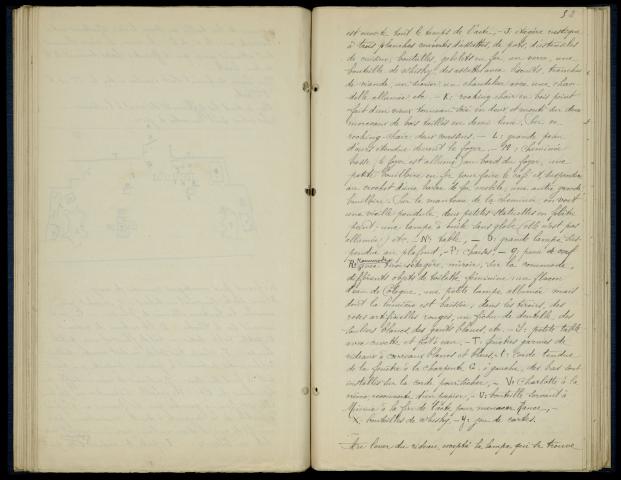 52
est ouverte tout le temps de l'acte, - J: étagère rustique
à trois planches couvertes d'assiettes, de pots, d'ustensiles
de cuisine, bouteilles, gobelets en fer, un verre, une
bouteille de whisky, des assiettes avec biscuits, tranches
de viande, un chandelier avec une chan
delle allumée etc. - K: rocking-chair en bois peint
fait d'un vieux tonneau scié en deux et monté sur deux
morceaux de bois taillés en demi lune. Sur ce
rocking-chair deux coussins. - L: grande peau
d'ours étendue devant le foyer, - M: cheminée
basse, le foyer est allumé, au bord du foyer, une
petite bouilloire en fer pour faire le café et suspendue
au crochet d'une barre de fer mobile, une autre grande
bouilloire. Sur le manteau de la cheminée, on voit
une vieille pendule, deux petites statuettes en plâtre
peint, une lampe à huile sans globe, (elle n'est pas
allumée) etc. - N: table, - O: grande lampe sus-
pendue au plafond, - P: chaises, - Q: peau de cerf
R: commode, miroir, sur la commode,
différents objets de toilette féminine: un flacon
d'eau de Cologne, une petite lampe allumée mais
dont la lumière est baissée, dans les tiroirs, des
roses artificielles rouges, un fichu de dentelle, des
souliers blancs, des gants blancs, etc. - S: petite table
avec cuvette et pot à eau. - T: fenêtres garnies de
rideaux à carreaux blancs et bleus, - t: corde tendue
de la fenêtre à la charpente C, à gauche, des bas sont
installés sur la corde pour sécher, - V: Charlotte à la
recouverte d'un papier, - U: bouteille servant à
Minnie à la fin de l'acte pour menacer Rance, -
X: bouteilles de whisky, - Y: jeu de cartes.
Au lever du rideau, excepté la lampe qui se trouve